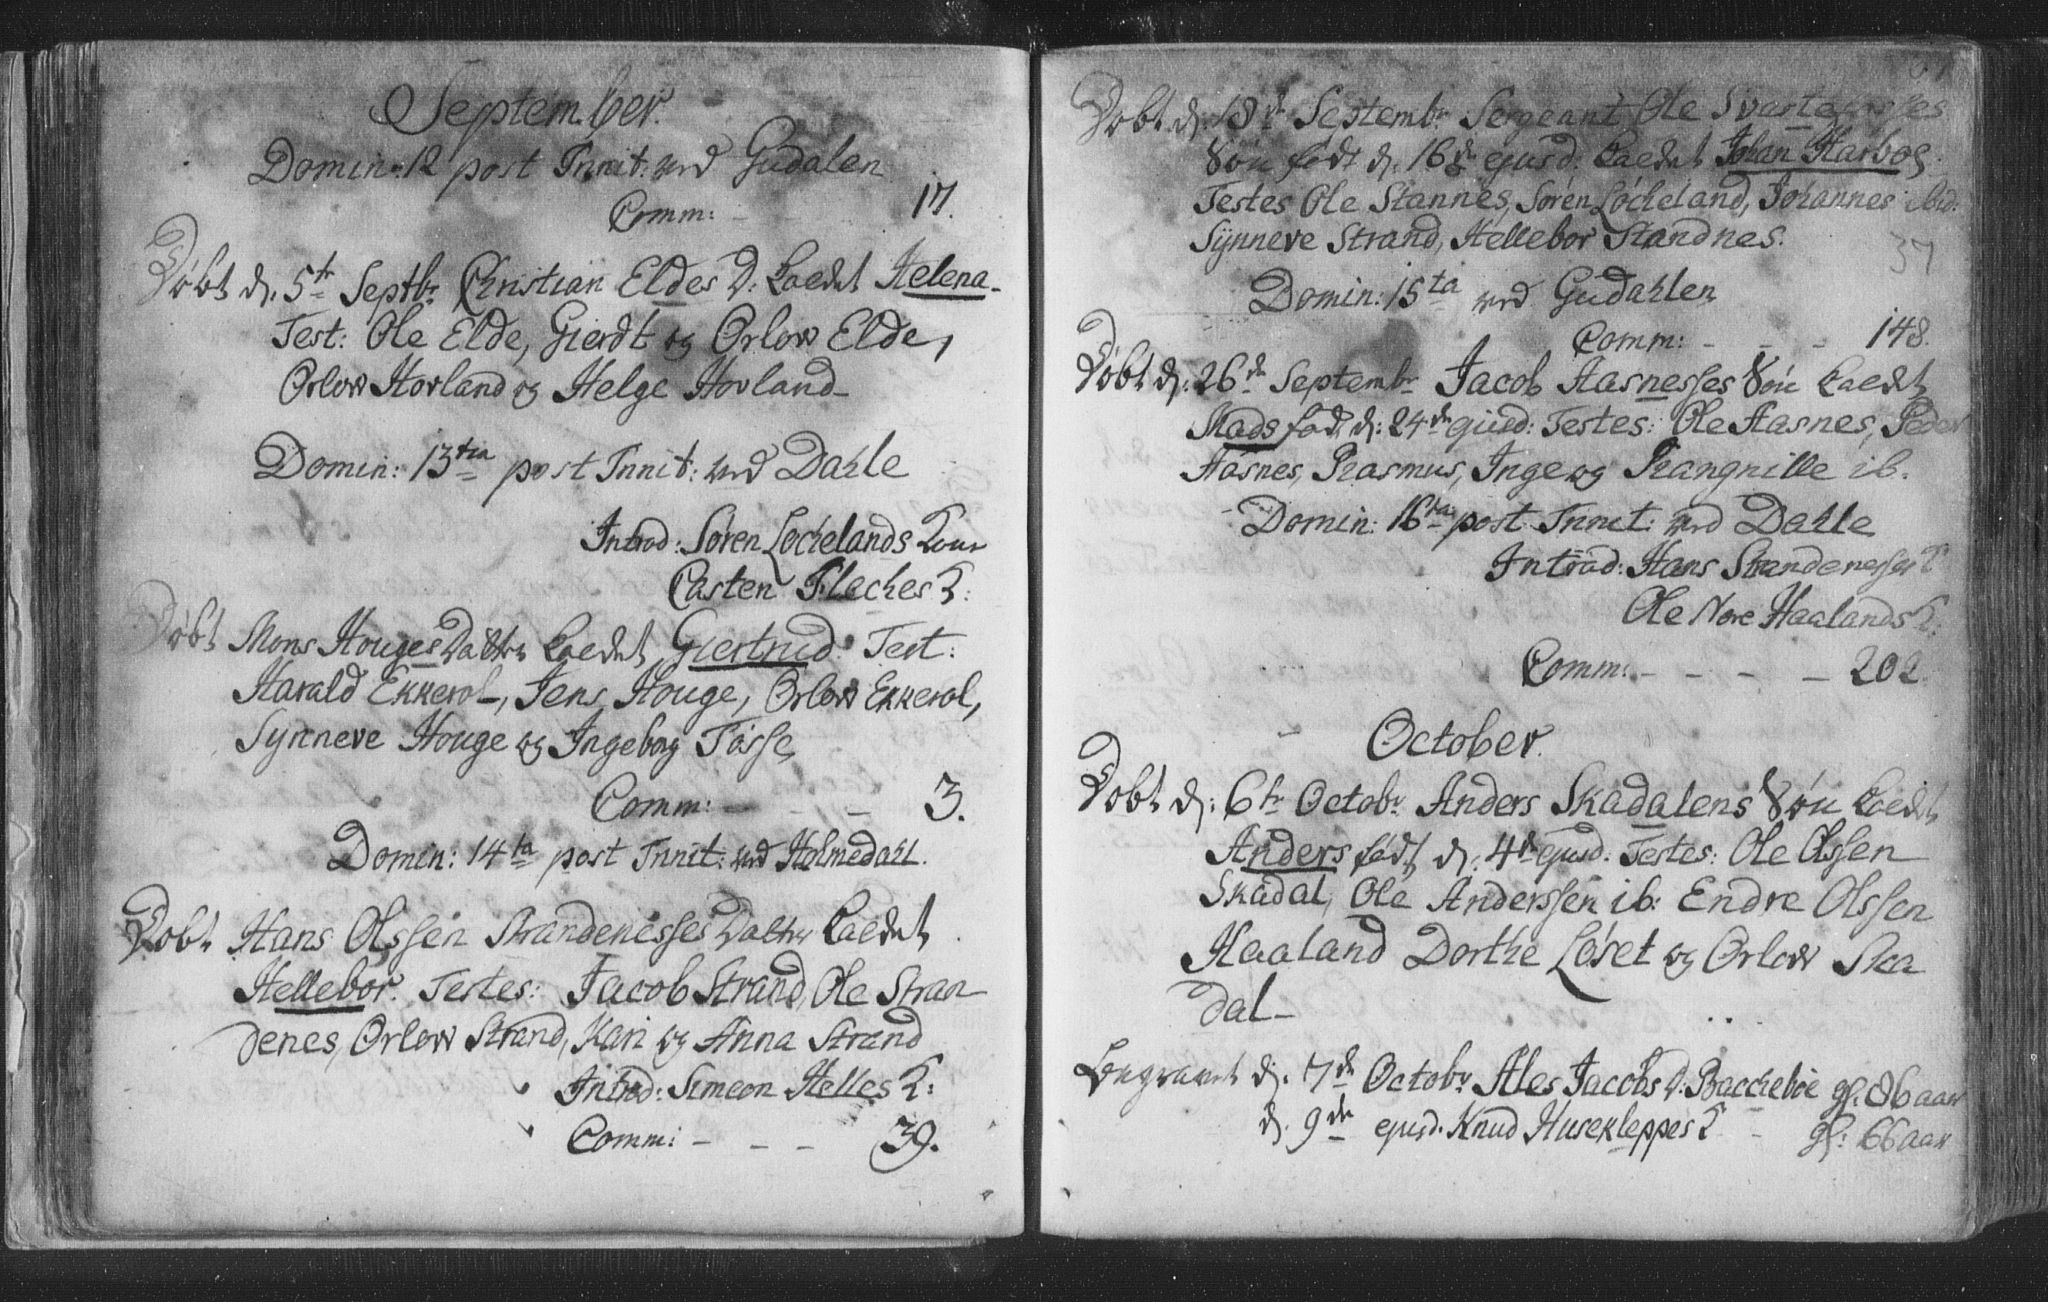 September.
Domin: 12 post Trinit: ved Gudalen
Comm: - - 17.
Døbt d. 5te Septbr Christian Eldes D: kaldet Helena -
Test: Ole Elde, Gierdt og Orlow Elde,
Orlow Hovland og Helge Hovland -
Domin: 13tia post Trinit: ved Dahle
Introd: Søren Lochelands Kone
Casten Fleches K:
Døbt Mons Houges Datter kaldet Giertrud. Test:
Harald Ekkerol, Jens Houge, Orlow Ekkerol,
Synneve Houge og Ingeborg Tasse,
Comm: - - - 3.
Domin: 14ta post Trinit: ved Holmedahl.
Døbt Hans Olssen Strandenesses Datter kaldet
Hellebor. Testes: Jacob Strand, Ole Stran
denes, Orlow Strand, Kari og Anna Strand
Introd: Simeon Helles K:
Comm: - - - 39.
Døbt d: 18de Septembr Sergeant Ole
Søn født d. 16de ejusd: kaldet Johan Harboe
Testes Ole Stannes, Søren Løcheland, Johannes ibid:
Synneve Strand, Hellebor Standnes.
37
Domin: 15ta ved Gudahlen
Comm: - - - 148.
Døbt d: 26de Septembr Jacob Aasnesses Søn kaldet
Mads fød d: 24de ejusd: Testes: Ole Aasnes, Peder
Aasnes, Rasmus, Inge og Rangnille ib.
Domin: 16ta post Trinit: ved Dahle
Introd: Hans Strandenesses K
Ole Nore Haalands K:
Comm: - - - - 202.
October.
Døbt d: 6te Octobr Anders Skadalens Søn kaldet
Anders født d: 4de ejusd: Testes: Ole Olssen
Skadal, Ole Anderssen ib: Endre Olssen
Haaland Dorthe Løset og Orlow Ska
dal -
Begravet d. 7de Octobr Ales Jacobs D: Baccheboe gl: 86 aar
d. 9de ejusd. Knud Husekleppes K - gl: 66 aar